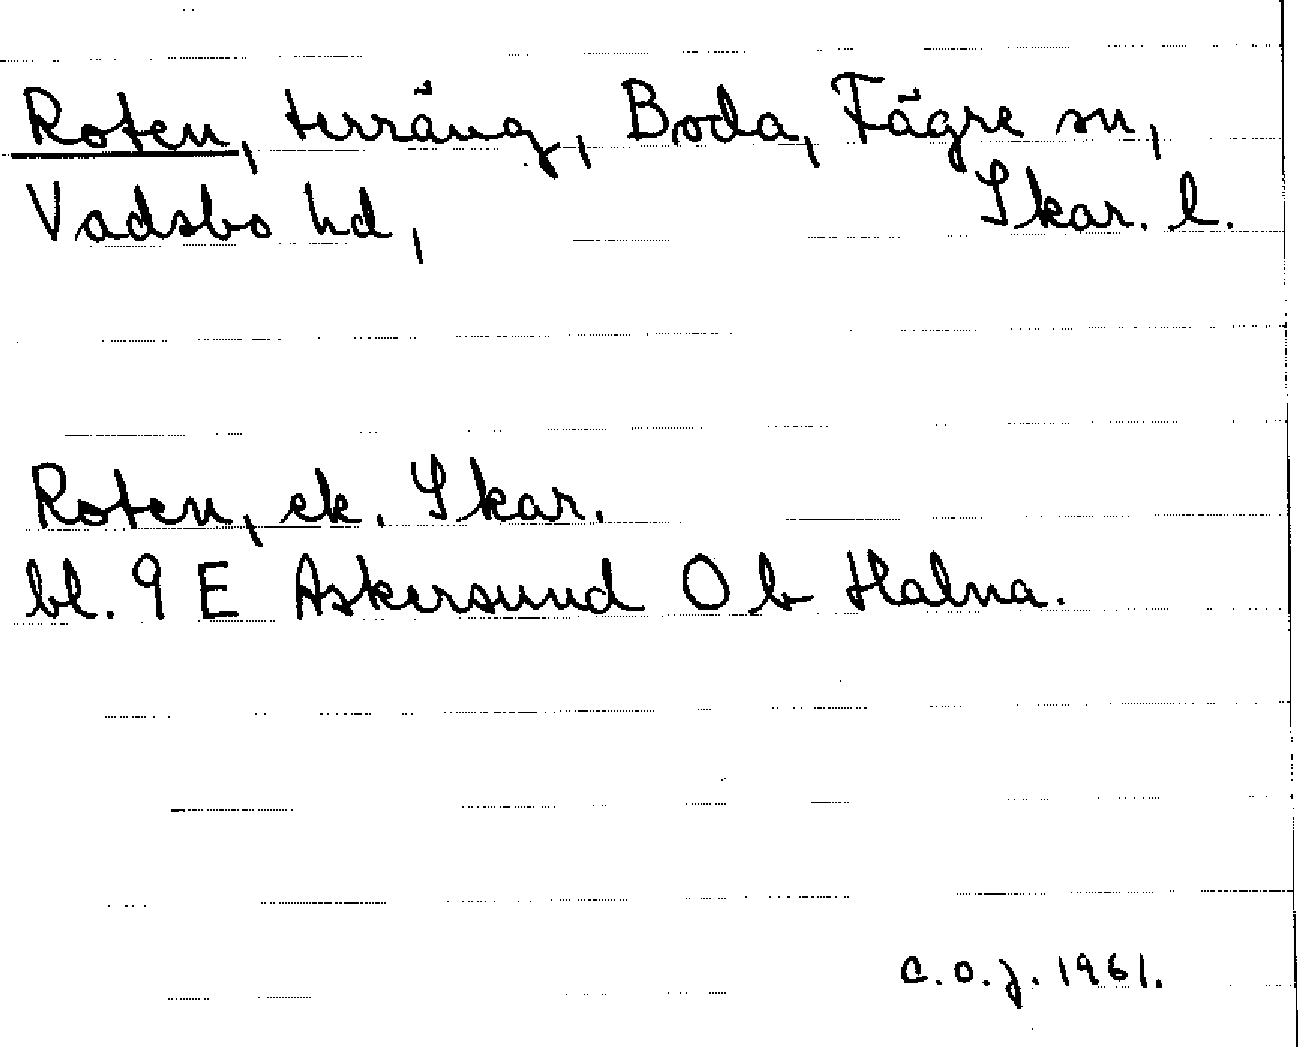 Roten, terräng, Boda, Fägre sn,
Vadsbo hd, Skar. l.
Roten, ek. Skar.
bl. 9 E Askersund O b Halna.
C.O.J. 1961.